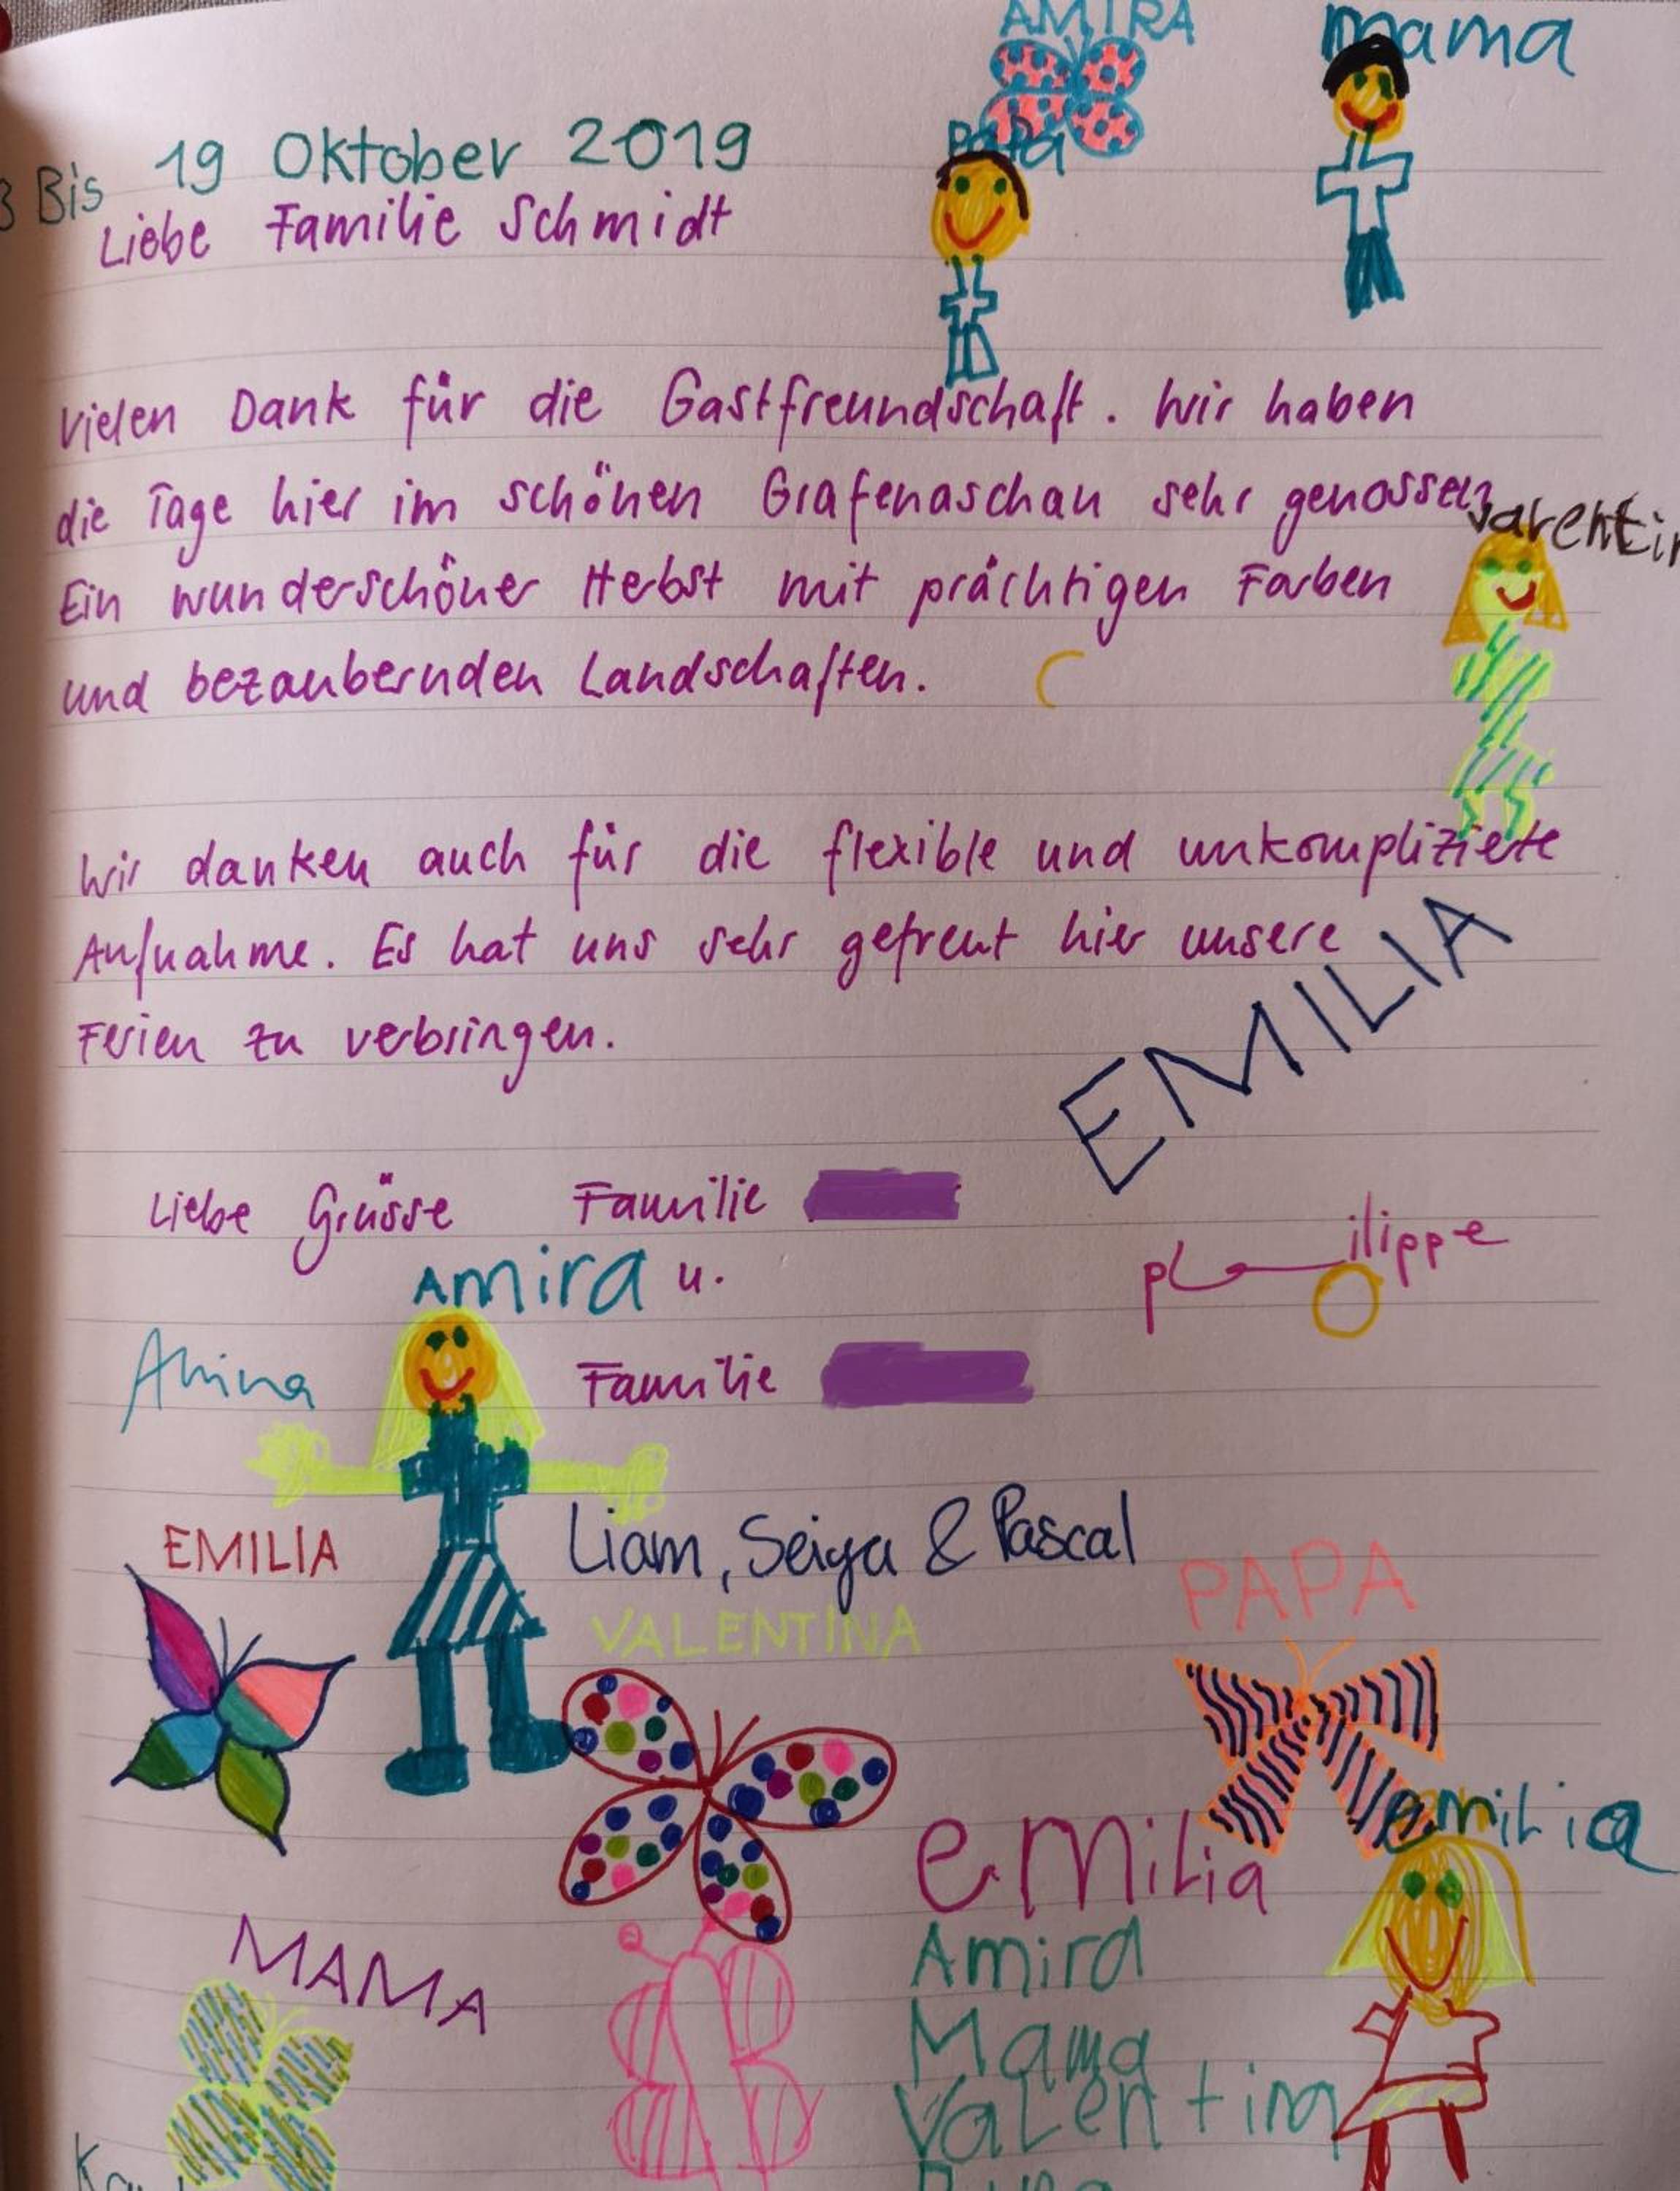 AMIRA
mama
Papa
Bis 19 Oktober 2019
Liebe Familie Schmidt
Vielen Dank für die Gastfreundschaft. Wir haben
die Tage hier im schönen Grafenaschau sehr genossen
Ein wunderschöner Herbst mit prächtigen Farben
und bezaubernden Landschaften.
Wir danken auch für die flexible und unkomplizierte
Aufnahme. Es hat uns sehr gefreut hier unsere
Ferien zu verbringen.
EMILIA
Liebe Grüsse Familie
Amira u.
Familie
EMILIA
Liam, Seiya & Pascal
VALENTINA
PAPA
emilia
emilia
MAMA
Amira
Mama
Valentina